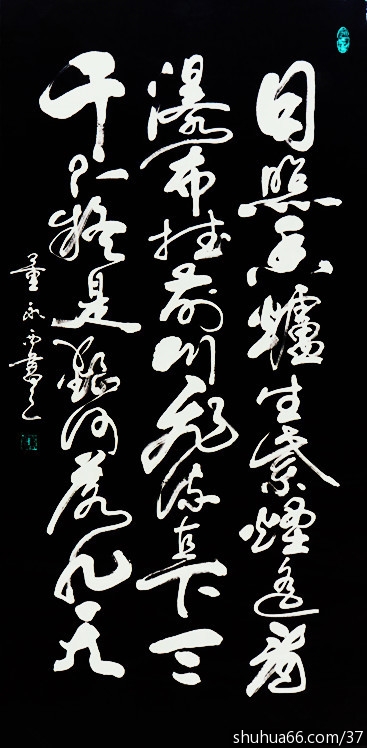 日照香爐生紫煙遙看
瀑布挂前川飛流直下三
千尺疑是銀河落九天
董永西書之
shuhua66.com/37